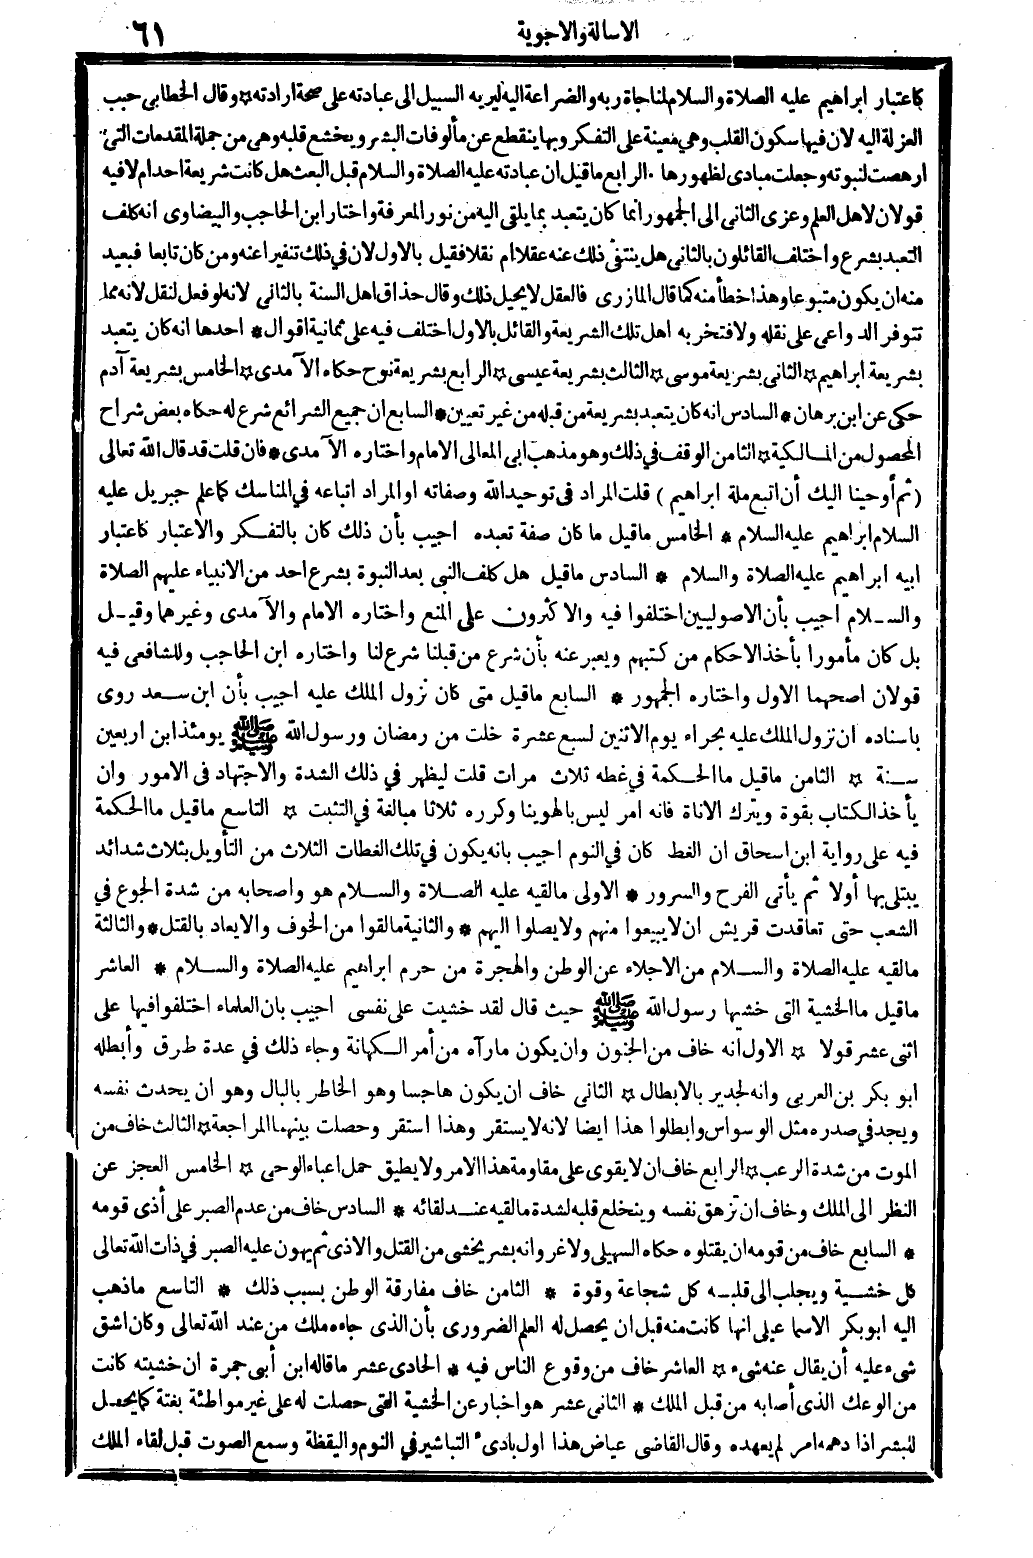 الاسالة والاجوبة ٦١
كاعتبار ابراهيم عليه الصلاة والسلام لمناجاة ربه والضراعة اليه ليريه السبيل الى عبادته على صحة ارادته * وقال الخطابي حبب
العزلة اليه لان فيها سكون القلب وهي معينة على التفكر وبها ينقطع عن مألوفات البشر ويخشع قلبه وهي من جملة المقدمات التي
ارهصت لنبوته وجعلت مبادى لظهورها . الرابع ماقيل ان عبادته عليه الصلاة والسلام قبل البعث هل كانت شريعة احد ام لا فيه
قولان لاهل العلم وعزى الثاني الى الجمهور انما كان يتعبد بما يلقى اليه من نور المعرفة واختار ابن الحاجب والبيضاوى انه كلف
التعبد بشرع واختلف القائلون بالثاني هل ينتفى ذلك عنه عقلا ام نقلا فقيل بالاول لان في ذلك تنفيرا عنه ومن كان تابعا فبعيد
منه ان يكون متبوعا وهذا خطأ منه كما قال المازرى فالعقل لا يحيل ذلك وقال حذاق اهل السنة بالثاني لانه لو فعل لنقل لانه مما
تتوفر الدواعى على نقله ولافتخر به اهل تلك الشريعة والقائل بالاول اختلف فيه على ثمانية اقوال * احدها انه كان يتعبد
بشريعة ابراهيم * الثاني بشريعة موسى * الثالث بشريعة عيسى * الرابع بشريعة نوح حكاه الآمدى * الخامس بشريعة آدم
حكى عن ابن برهان * السادس انه كان يتعبد بشريعة من قبله من غير تعيين * السابع ان جميع الشرائع شرع له حكاه بعض شراح
المحصول من المالكية * الثامن الوقف في ذلك وهو مذهب ابى المعالى الامام واختاره الآمدى * فان قلت قد قال الله تعالى
(ثم أوحينا اليك أن اتبع ملة ابراهيم) قلت المراد في توحيد الله وصفاته او المراد اتباعه في المناسك كما علم جبريل عليه
السلام ابراهيم عليه السلام * الخامس ماقيل ما كان صفة تعبده اجيب بأن ذلك كان بالتفكر والاعتبار كاعتبار
ابيه ابراهيم عليه الصلاة والسلام * السادس ماقيل هل كلف النبي بعد النبوة بشرع احد من الانبياء عليهم الصلاة
والسلام اجيب بأن الاصوليين اختلفوا فيه والاكثرون على المنع واختاره الامام والآمدى وغيرهما وقيل
بل كان مأمورا بأخذ الاحكام من كتبهم ويعبر عنه بأن شرع من قبلنا شرع لنا واختاره ابن الحاجب وللشافعى فيه
قولان اصحهما الاول واختاره الجمهور * السابع ماقيل متى كان نزول الملك عليه اجيب بأن ابن سعد روى
باسناده ان نزول الملك عليه بحراء يوم الاثنين لسبع عشرة خلت من رمضان ورسول الله ﷺ يومئذ ابن اربعين
سنة * الثامن ماقيل ما الحكمة في غطه ثلاث مرات قلت ليظهر في ذلك الشدة والاجتهاد في الامور وان
يأخذ الكتاب بقوة ويترك الاناة فانه امر ليس بالهوينا وكرره ثلاثا مبالغة في التثبت * التاسع ماقيل ما الحكمة
فيه على رواية ابن اسحاق ان الغط كان في النوم اجيب بانه يكون في تلك الغطات الثلاث من التأويل بثلاث شدائد
يبتلى بها أولا ثم يأتى الفرح والسرور * الاولى مالقيه عليه الصلاة والسلام هو واصحابه من شدة الجوع في
الشعب حتى تعاقدت قريش ان لا يبيعوا منهم ولا يصلوا اليهم * والثانية مالقوا من الخوف والايعاد بالقتل * والثالثة
مالقيه عليه الصلاة والسلام من الاجلاء عن الوطن والهجرة من حرم ابراهيم عليه الصلاة والسلام * العاشر
ماقيل ما الخشية التى خشيها رسول الله ﷺ حيث قال لقد خشيت على نفسى اجيب بان العلماء اختلفوا فيها على
اثنى عشر قولا * الاول انه خاف من الجنون وان يكون مارآه من أمر الكهانة وجاء ذلك في عدة طرق وأبطله
ابو بكر بن العربى وانه لجدير بالابطال * الثانى خاف ان يكون هاجسا وهو الخاطر بالبال وهو ان يحدث نفسه
ويجد في صدره مثل الوسواس وابطلوا هذا ايضا لانه لا يستقر وهذا استقر وحصلت بينهما المراجعة * الثالث خاف من
الموت من شدة الرعب * الرابع خاف ان لا يقوى على مقاومة هذا الامر ولا يطيق حمل اعباء الوحى * الخامس العجز عن
النظر الى الملك وخاف ان تزهق نفسه وينخلع قلبه لشدة مالقيه عند لقائه * السادس خاف من عدم الصبر على أذى قومه
* السابع خاف من قومه ان يقتلوه حكاه السهيلى ولا غرو انه بشر يخشى من القتل والاذى ثم يهون عليه الصبر في ذات الله تعالى
كل خشية ويجلب الى قلبه كل شجاعة وقوة * الثامن خاف مفارقة الوطن بسبب ذلك * التاسع ماذهب
اليه ابو بكر الاسماعيلى انها كانت منه قبل ان يحصل له العلم الضرورى بأن الذى جاءه ملك من عند الله تعالى وكان اشق
شىء عليه أن يقال عنه شىء * العاشر خاف من وقوع الناس فيه * الحادى عشر ماقاله ابن أبى جمرة ان خشيته كانت
من الوعك الذى أصابه من قبل الملك * الثانى عشر هو اخبار عن الخشية التى حصلت له على غير مواطئة بغتة كما يحصل
للبشر اذا دهمه امر لم يعهده وقال القاضى عياض هذا اول بادىء التباشير في النوم واليقظة وسمع الصوت قبل لقاء الملك